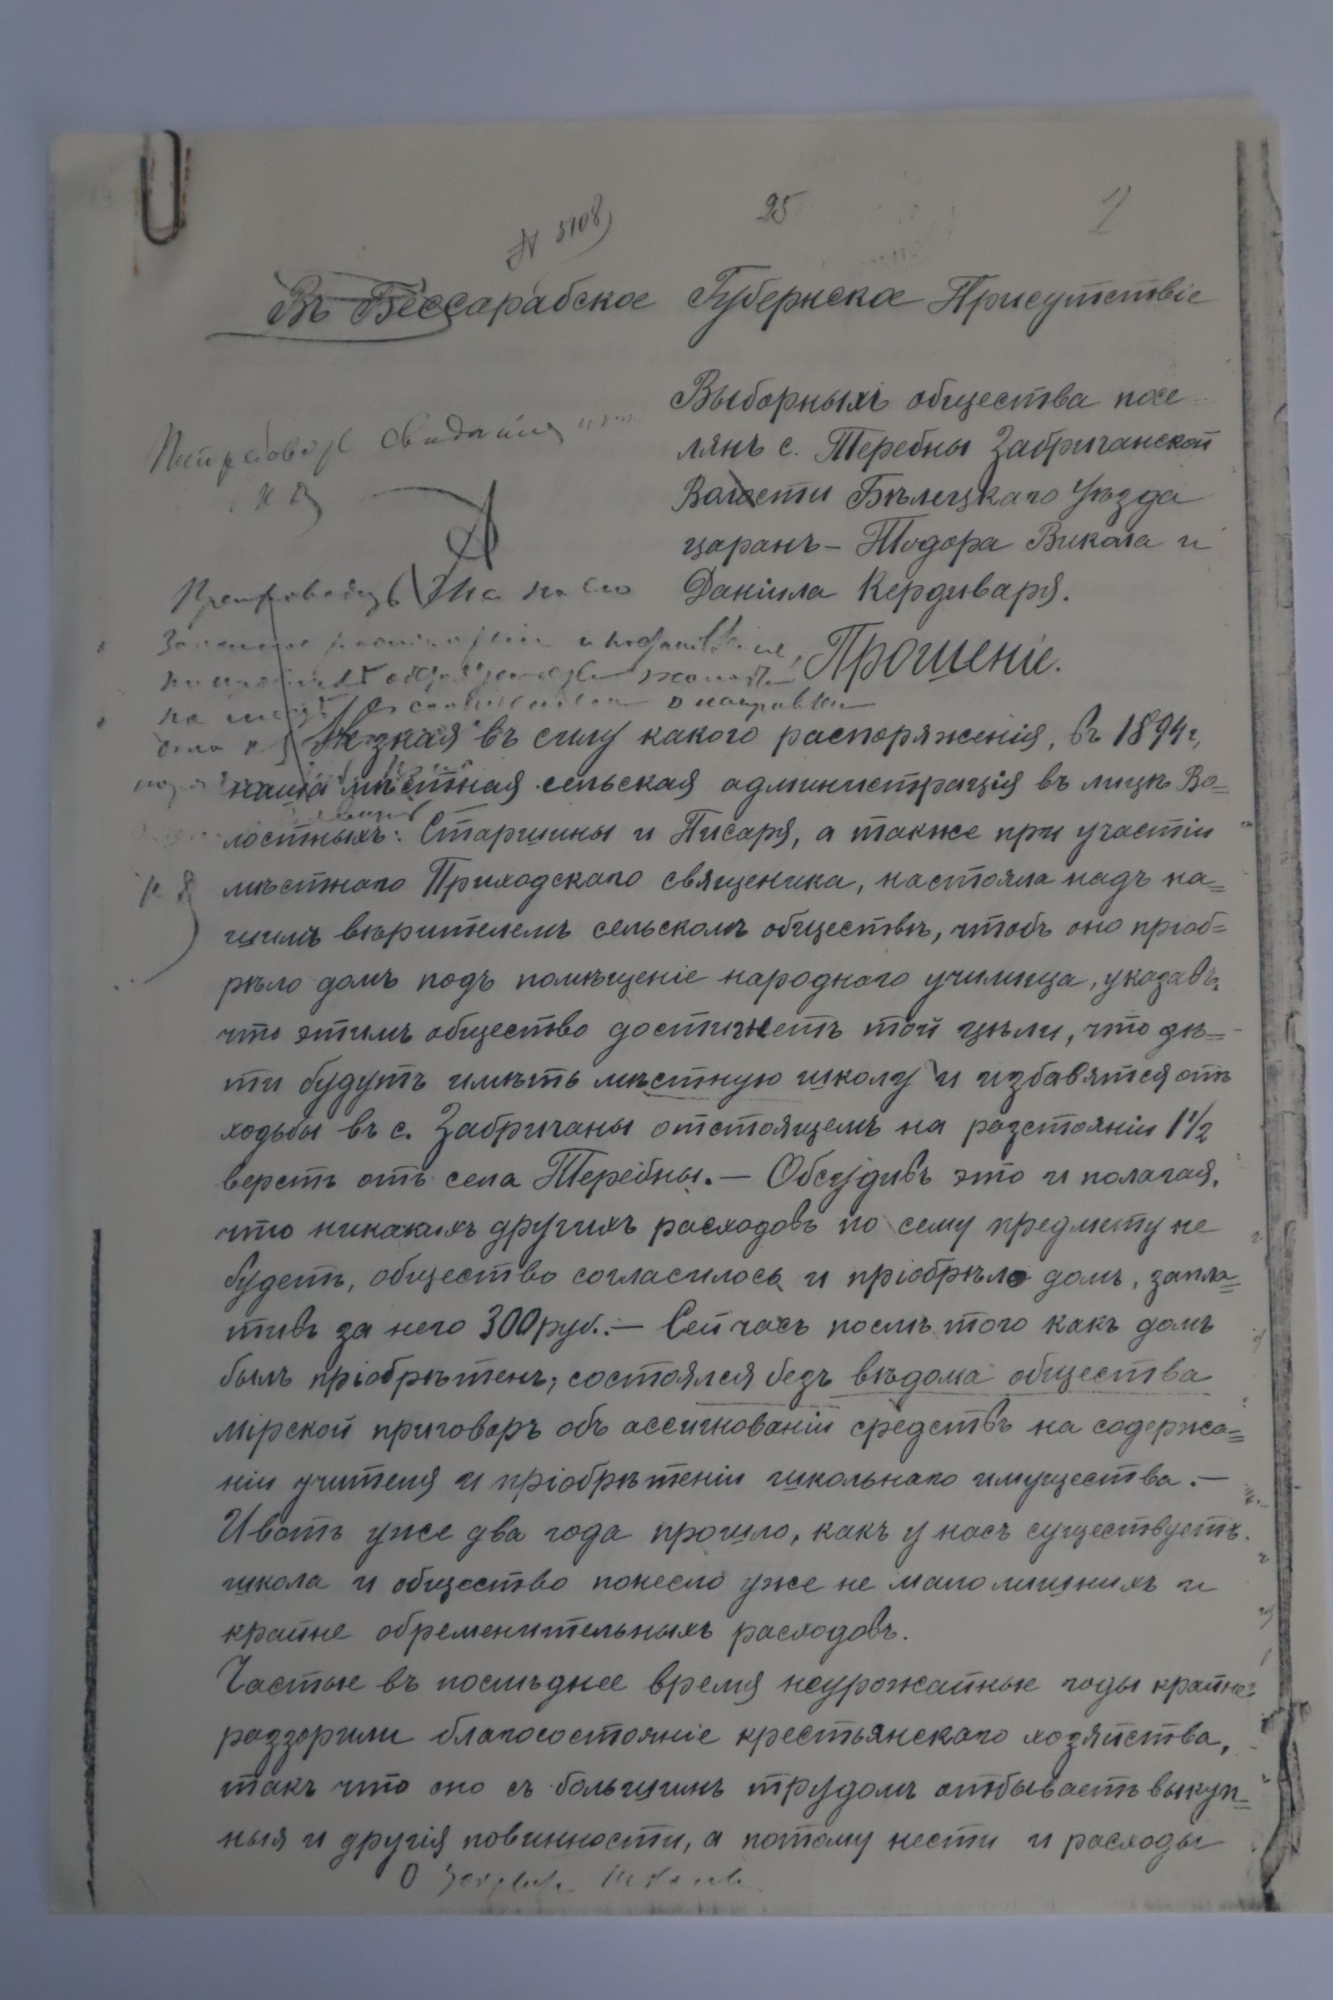 25
№ 5108
Въ Бессарабское Губернское Присутствіе
Выборныхъ общества посе-
лянъ с. Теребны Забричанской
Волости Бѣлецкаго Уѣзда
царанъ – Тодора Викола и
Даніила Кердиваря.
Прошеніе.
Не зная въ силу какого распоряженія, въ 1894 г,
наша мѣстная сельская администрація въ лицѣ Во=
лостныхъ: Старшины и Писаря, а также при участіи
мѣстнаго Приходскаго священика, настояла надъ на=
шимъ вѣрителемъ сельскомъ обществѣ, чтобъ оно пріоб=
рѣло домъ подъ помѣщеніе народнаго училища, указавъ,
что этимъ общество достигнетъ той цѣли, что дѣ=
ти будутъ имѣть мѣстную школу и избавятся отъ
ходьбы въ с. Забричаны отстоящемъ на разстояніи 1½
верстъ отъ села Теребны. — Обсудивъ это и полагая,
что никакихъ другихъ расходовъ по сему предмету не
будетъ, общество согласилось и пріобрѣло домъ, запла=
тивъ за него 300 руб. — Сейчасъ послѣ того какъ домъ
былъ пріобрѣтенъ, состоялся безъ вѣдома общества
мірской приговоръ объ ассигнованіи средствъ на содержа=
ніи учителя и пріобрѣтеніи школьнаго имущества. —
И вотъ уже два года прошло, какъ у насъ существуетъ
школа и общество понесло уже не мало лишнихъ и
крайне обременительныхъ расходовъ.
Частые въ послѣднее время неурожайные годы крайне
раззорили благосостояніе крестьянскаго хозяйства,
такъ что оно съ большимъ трудомъ отбываетъ выкуп=
ныя и другія повинности, а потому нести и расходы